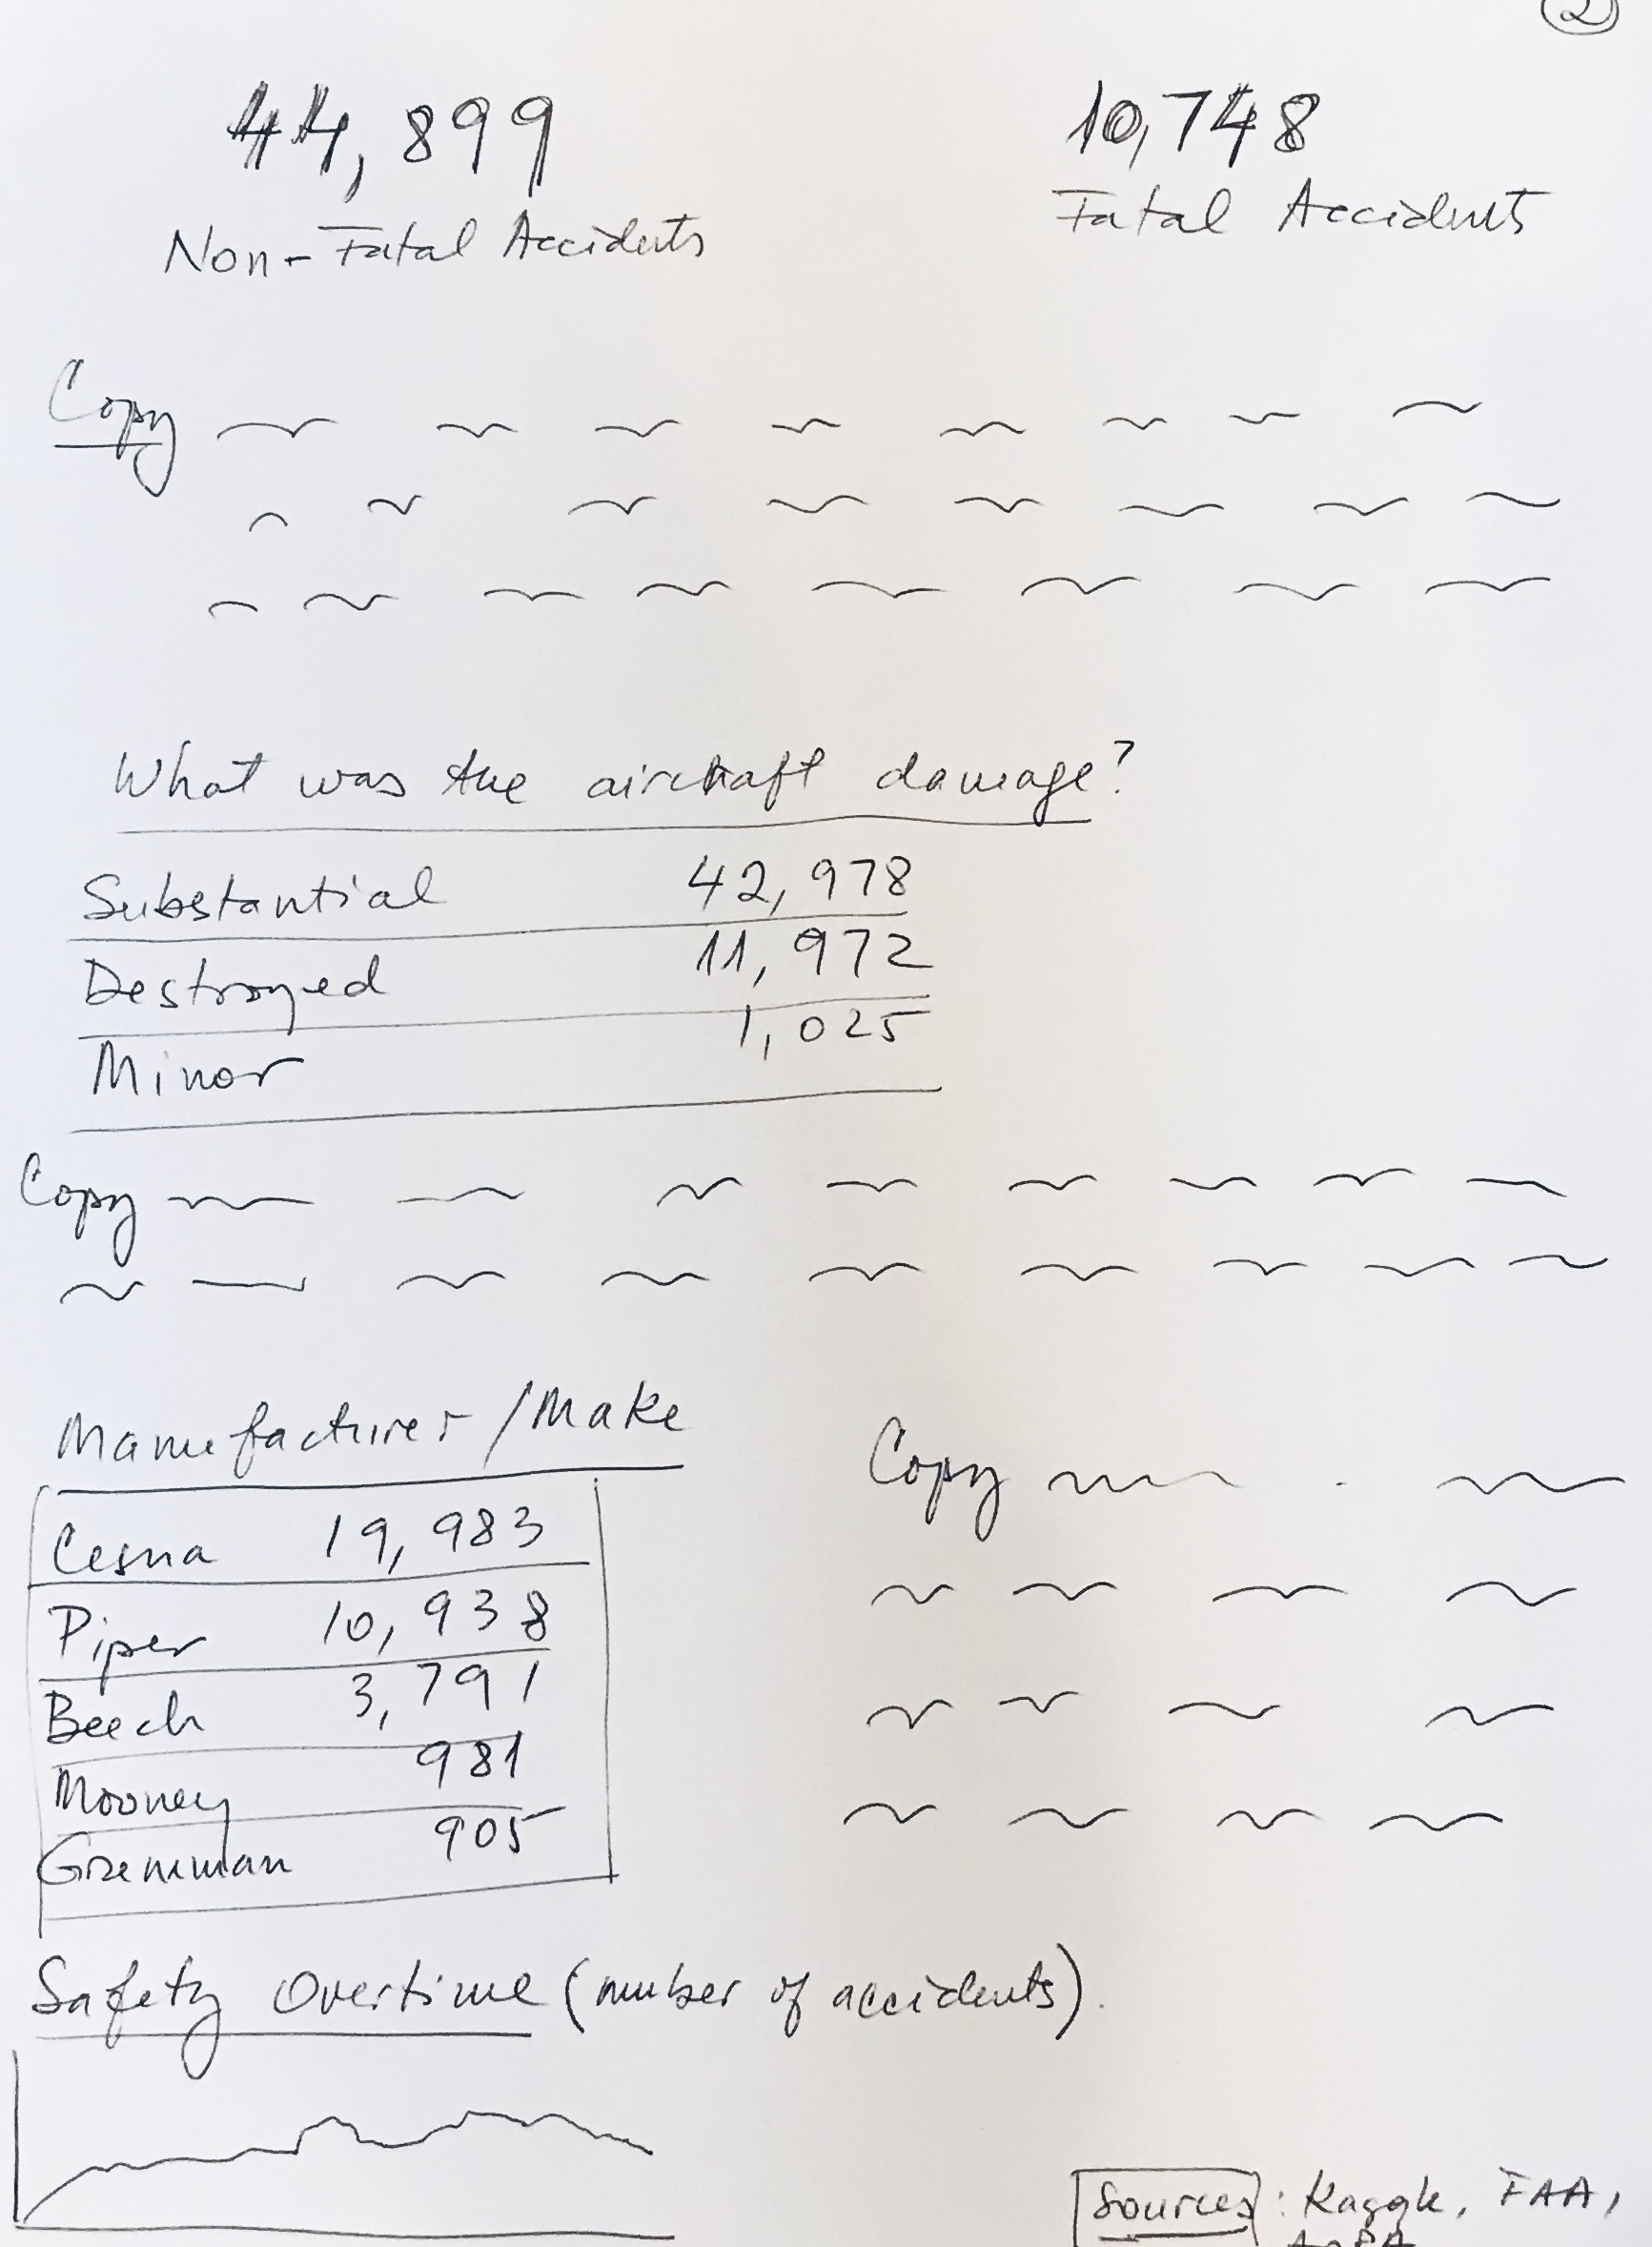 2
44,899
10,748
Non-Fatal Accidents
Fatal Accidents
Copy
What was the aircraft damage?
Substantial 42,978
Destroyed 11,972
Minor 1,025
Copy
Manufacturer/Make
Copy
Cesna 19,983
Piper 10,938
Beech 3,791
Mooney 981
Grumman 905
Safety Overtime (number of accidents).
Sources: Kaggle, FAA,